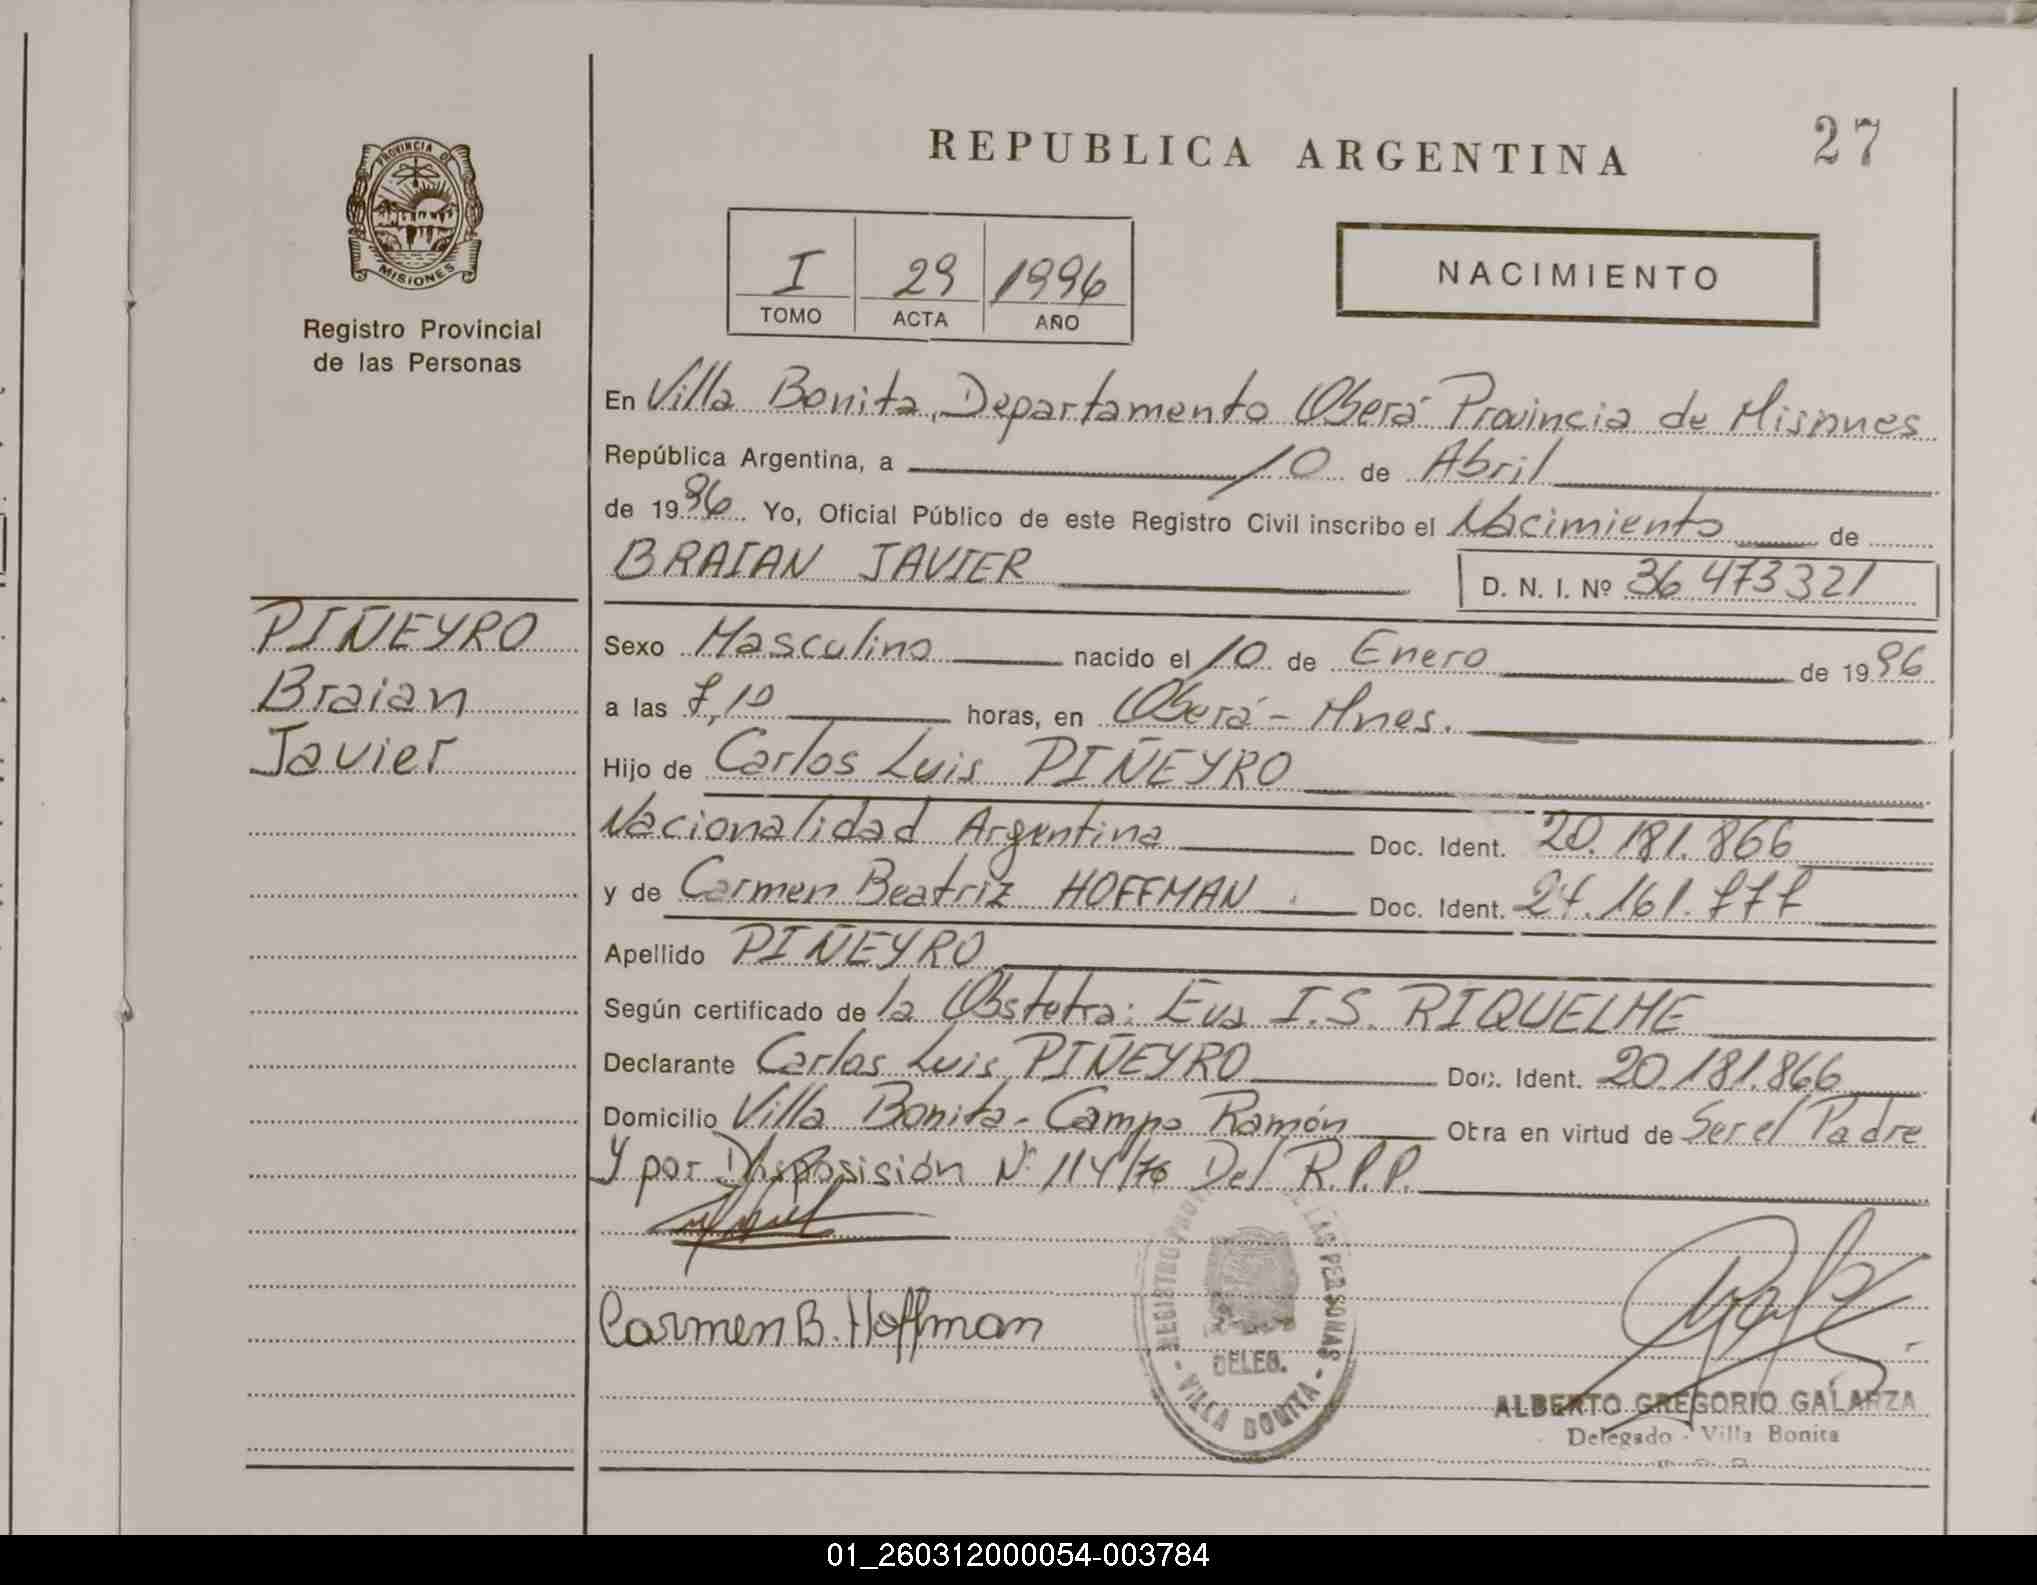 REPUBLICA ARGENTINA
27
PROVINCIA DE
MISIONES
Registro Provincial
de las Personas
I 29 1996
TOMO ACTA AÑO
NACIMIENTO
En Villa Bonita, Departamento Oberá Provincia de Misiones
República Argentina, a 10 de Abril
de 1996 Yo, Oficial Público de este Registro Civil inscribo el Nacimiento de
BRAIAN JAVIER
D. N. I. Nº 36 473321
PIÑEYRO
Braian
Javier
Sexo Masculino nacido el 10 de Enero de 1996
a las 7,10 horas, en Oberá - Mnes.
Hijo de Carlos Luis PIÑEYRO
Nacionalidad Argentina Doc. Ident. 20.181.866
y de Carmen Beatriz HOFFMAN Doc. Ident. 27.161.777
Apellido PIÑEYRO
Según certificado de la Obstetra: Eva I.S. RIQUELME
Declarante Carlos Luis PIÑEYRO Doc. Ident. 20.181.866
Domicilio Villa Bonita - Campo Ramón Obra en virtud de Ser el Padre
Y por Disposisión Nº 114/76 Del R.P.P.
Carmen B. Hoffman
REGISTRO PROV LAS PERSONAS
DELEG.
- VILLA BONITA -
ALBERTO GREGORIO GALARZA
Delegado - Villa Bonita
01_260312000054-003784